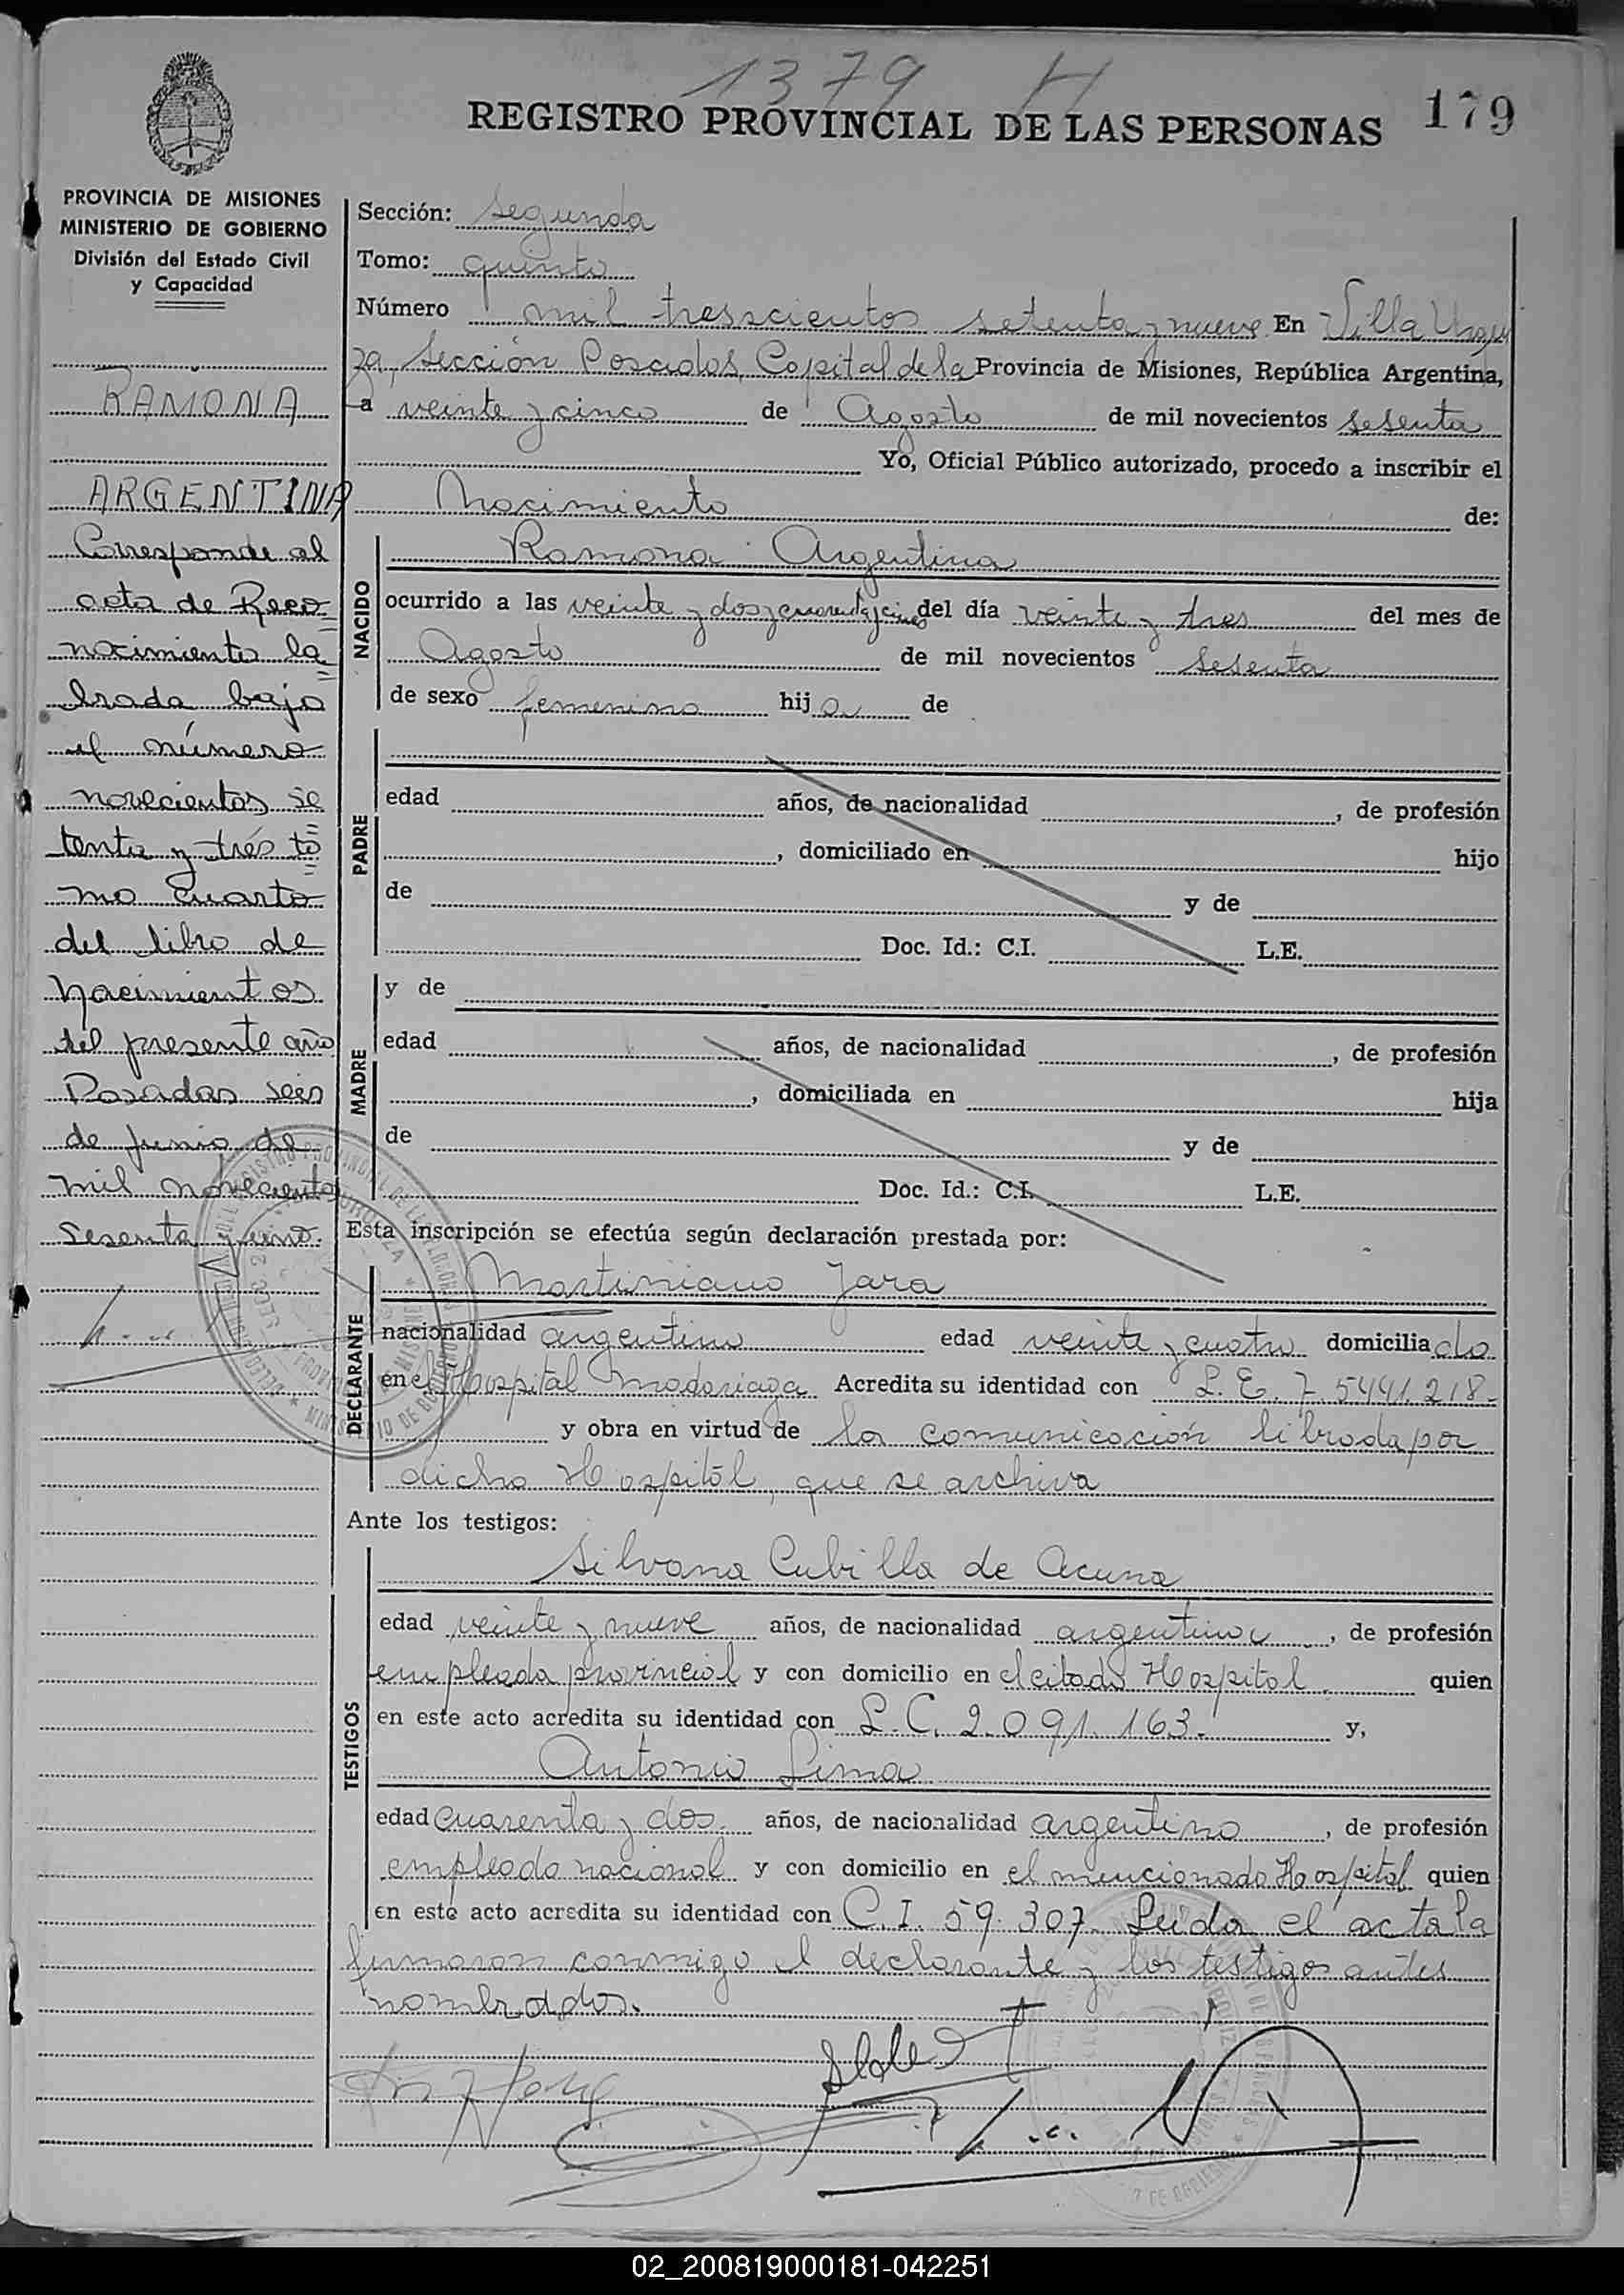 1379 H
REGISTRO PROVINCIAL DE LAS PERSONAS 179
PROVINCIA DE MISIONES
MINISTERIO DE GOBIERNO
División del Estado Civil
y Capacidad
RAMONA
ARGENTINA
Corresponde al
acta de Reco
nocimiento la
brada bajo
el número
novecientos se
tenta y trés to
mo cuarto
del libro de
Nacimientos
del presente año
Posadas seis
de junio de
mil novecientos
sesenta y uno.
Sección: segunda
Tomo: quinto
Número mil tresscientos setenta y nueve En Villa Urqui
za, Sección Posadas, Capital de la Provincia de Misiones, República Argentina,
a veinte y cinco de Agosto de mil novecientos sesenta
Yo, Oficial Público autorizado, procedo a inscribir el
Nacimiento de:
NACIDO
Ramona Argentina
ocurrido a las veinte y dos y cuarenta y cinco del día veinte y tres del mes de
Agosto de mil novecientos sesenta
de sexo femenino hija de
PADRE
edad años, de nacionalidad , de profesión
, domiciliado en hijo
de y de
Doc. Id.: C.I. L.E.
MADRE
y de
edad años, de nacionalidad , de profesión
, domiciliada en hija
de y de
Doc. Id.: C.I. L.E.
Esta inscripción se efectúa según declaración prestada por:
DECLARANTE
Martiniano Jara
nacionalidad argentino edad veinte y cuatro domiciliado
en el Hospital Madariaga Acredita su identidad con L.E. 7.5441.218-
y obra en virtud de la comunicación librada por
dicho Hospital, que se archiva
Ante los testigos:
TESTIGOS
Silvana Cubilla de Acuna
edad veinte y nueve años, de nacionalidad argentina, de profesión
empleada provincial y con domicilio en el citado Hospital quien
en este acto acredita su identidad con L.C. 2.091.163.- y,
Antonio Lima
edad cuarenta y dos años, de nacionalidad argentino, de profesión
empleado nacional y con domicilio en el mencionado Hospital quien
en este acto acredita su identidad con C.I. 59.307. Leida el acta la
firmaron conmigo el declarante y los testigos antes
nombrados.
02_200819000181-042251